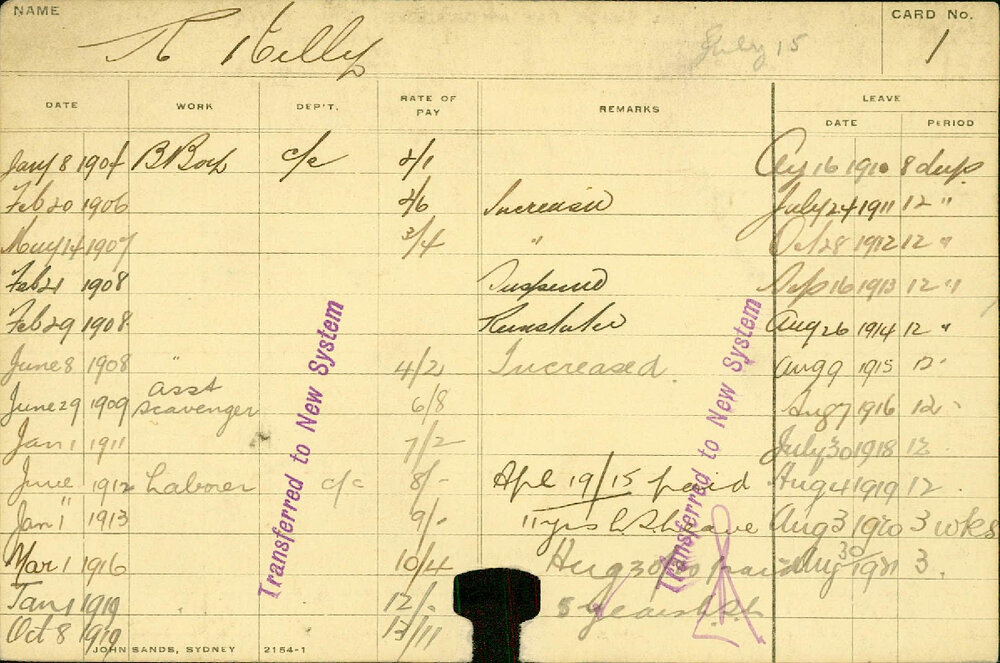 NAME
CARD No.
Kelly
July 15
1
DATE WORK DEP'T. RATE OF PAY REMARKS LEAVE
DATE PERIOD
Jany 8 1904 B Boy c/c 2/1 Aug 16 1910 8 days
Feb 20 1906 2/6 Increase July 24 1911 12 "
May 14 1907 3/4 " Oct 28 1912 12 "
Feb 21 1908 Suspend Sep 16 1913 12 "
Feb 29 1908 Reinstated Aug 26 1914 12 "
June 8 1908 " 4/2 Increased Aug 9 1915 12
June 29 1909 asst scavenger 6/8 Aug 7 1916 12
Jan 1 1911 7/2 July 30 1918 12
June 1 1912 Laborer c/c 8/- Apl 19/15 paid Aug 4 1919 12
Jan 1 " 1913 9/- 11 yrs Leave Aug 3 1920 3 wks
Mar 1 1916 10/4 Aug 30 paid Aug 30 1921 3.
Jan 1 1919 12/- 5 years
Oct 8 1919 13/11
JOHN SANDS, SYDNEY 2154-1
Transferred to New System
Transferred to New System